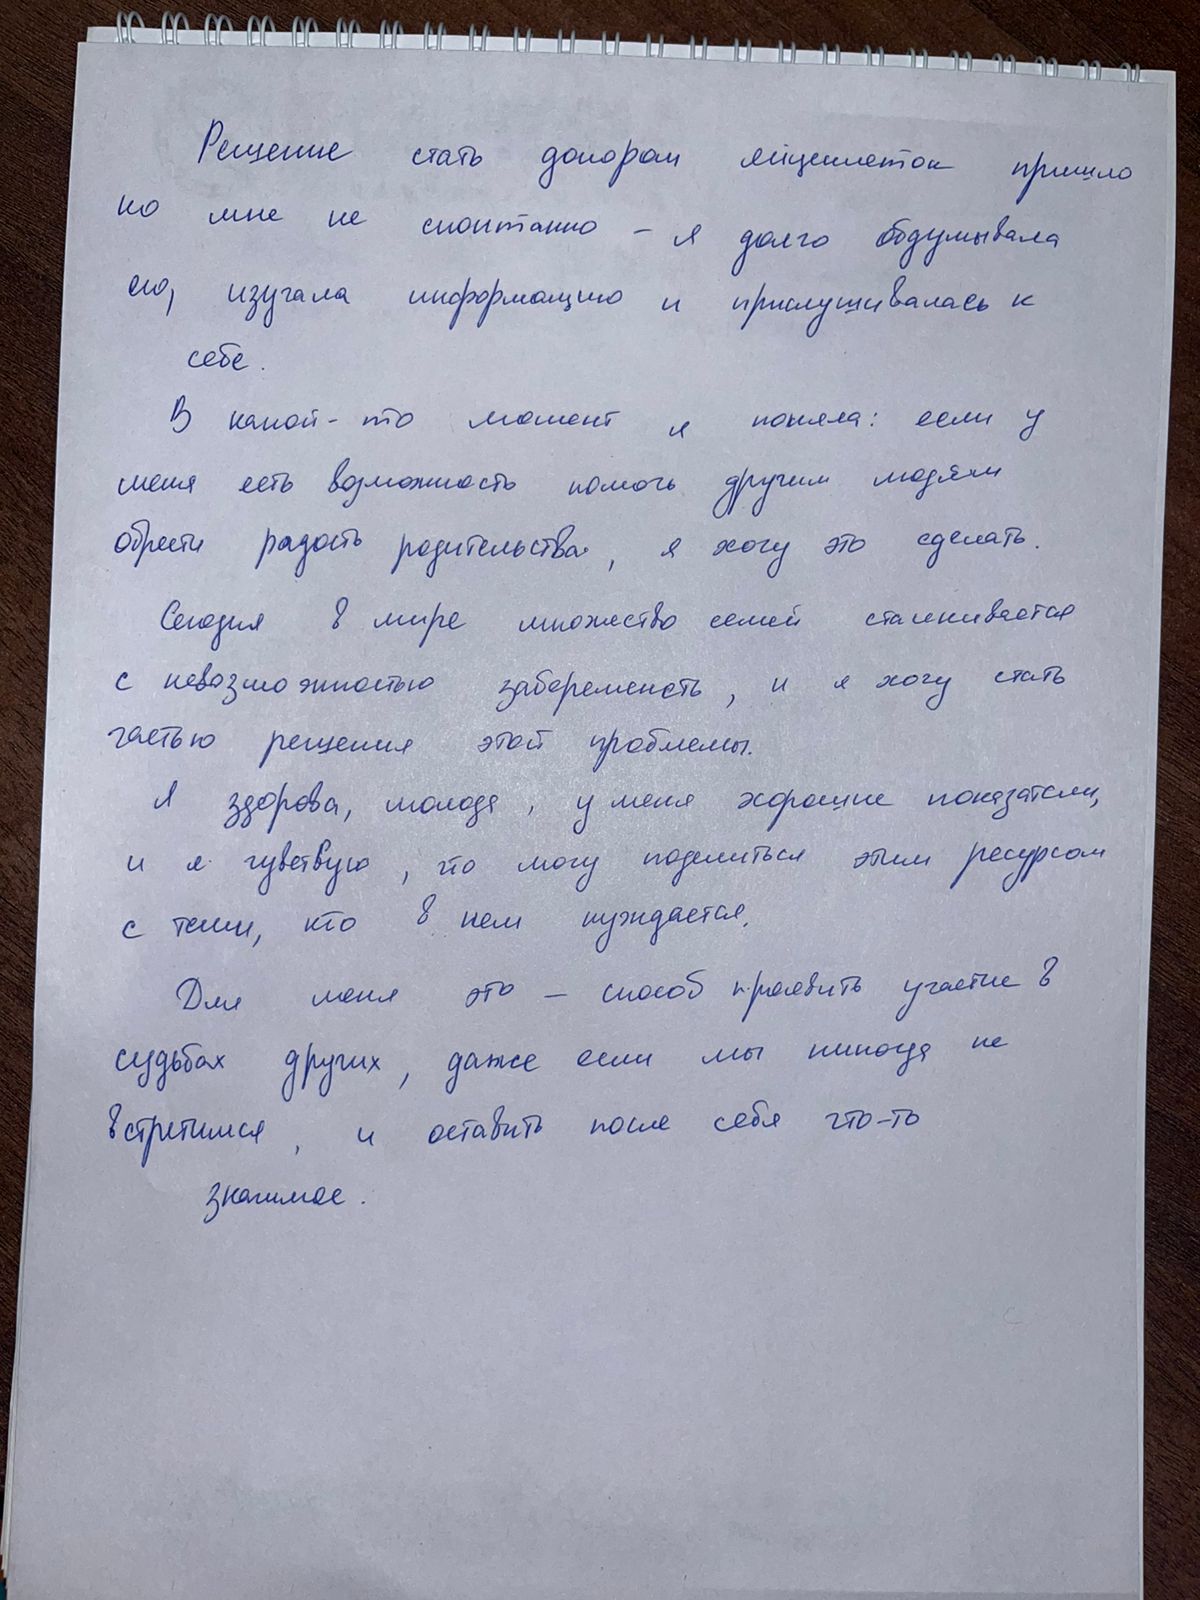 Решение стать донором яйцеклеток пришло
ко мне не спонтанно – я долго обдумывала
его, изучала информацию и прислушивалась к
себе.
В какой-то момент я поняла: если у
меня есть возможность помочь другим людям
обрести радость родительства, я хочу это сделать.
Сегодня в мире множество семей сталкивается
с невозможностью забеременеть, и я хочу стать
частью решения этой проблемы.
Я здорова, молода, у меня хорошие показатели,
и я чувствую, что могу поделиться этим ресурсом
с теми, кто в нем нуждается.
Для меня это – способ проявить участие в
судьбах других, даже если мы никогда не
встретимся, и оставить после себя что-то
значимое.